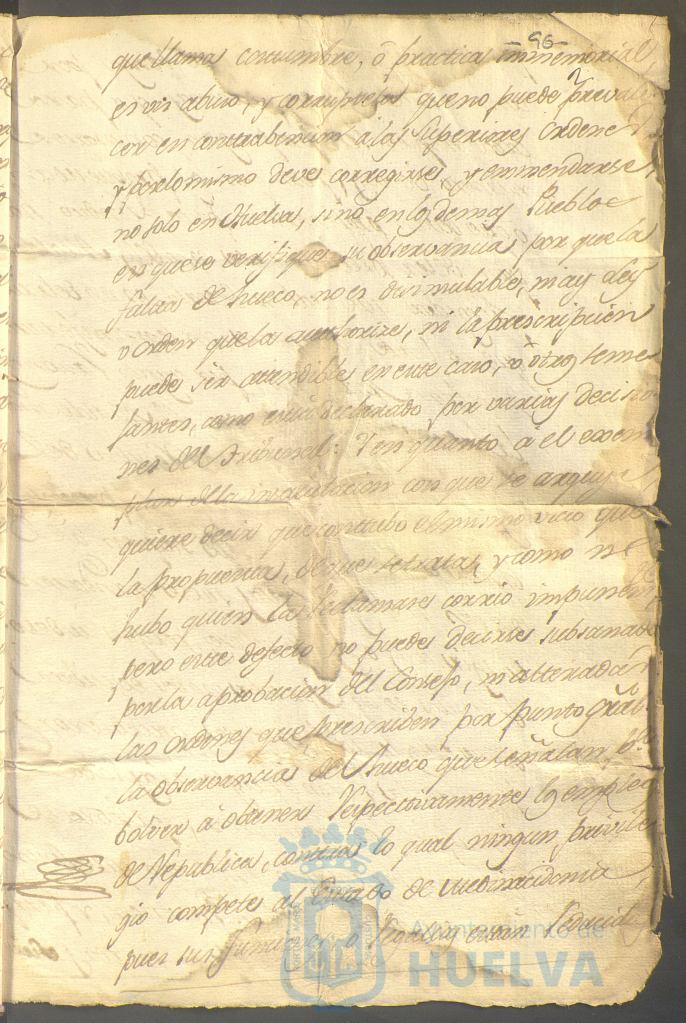 -96-
que llama costumbre, ò practica inmemorial,
es un abuso, y corruptela que no puede preval
cer en contrabencion a las Superiores Ordenes
y por lo mismo deve corregirse, y enmendarse,
no solo en Huelva, sino en los demas Pueblos
en que se verifique su observancia por que la
falta de hueco, no es disimulable, ni ay Ley
v orden que la authorize, ni la prescripcion
puede ser atendible en este caso, v otros seme
jantes, como está declarado por varias decisio
nes del Tribunal: Y en quanto a el exem
plar de la insaculacion con que se arguye
quiere decir que contubo el mismo vicio que
la propuesta, de que se trata, y como no
hubo quien la reclamase corrió impunem
pero este defecto no puede decirse subsanado
por la aprobacion del Consejo, ni alteradas
las ordenes que prescriben por punto Gral
la observancia de hueco que señalan
bolver à obtener respectivamente los empleos
de Republica, contra lo qual ningun privile
gio compete al Estado de
pues sus o estan reducid
Ayuntamiento de
HUELVA